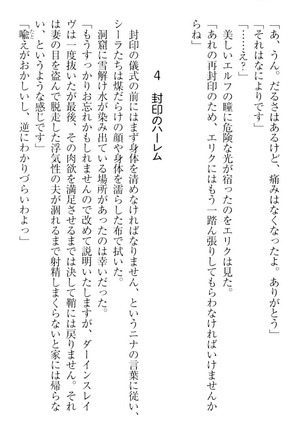 「あ、うん。だるさはあるけど、痛みはなくなったよ。ありがとう」
「それはなによりです」
「……え？」
美しいエルフの瞳に危険な光が宿ったのをエリクは見た。
「あれの再封印のため、エリクにはもう一踏ん張りしてもらわなければいけませんか
らね」
4　封印のハーレム
封印の儀式の前にはまず身体を清めなければなりません、というニナの言葉に従い、
シーラたちは煤だらけの顔や身体を濡らした布で拭いた。
洞窟に雪解け水が染み出ている場所があったのは幸いだった。
「もうすっかりお忘れかもしれませんので改めて説明いたしますが、ダーインスレイ
ヴは一度抜いたが最後、その肉欲を満足させるまでは決して鞘には戻りません。それ
は妻の目を盗んで脱走した浮気性の夫が涸れるまで射精しまくらないと家には帰らな
い、というような感じです」
「喩えがおかしいし、逆にわかりづらいわよっ」
たと